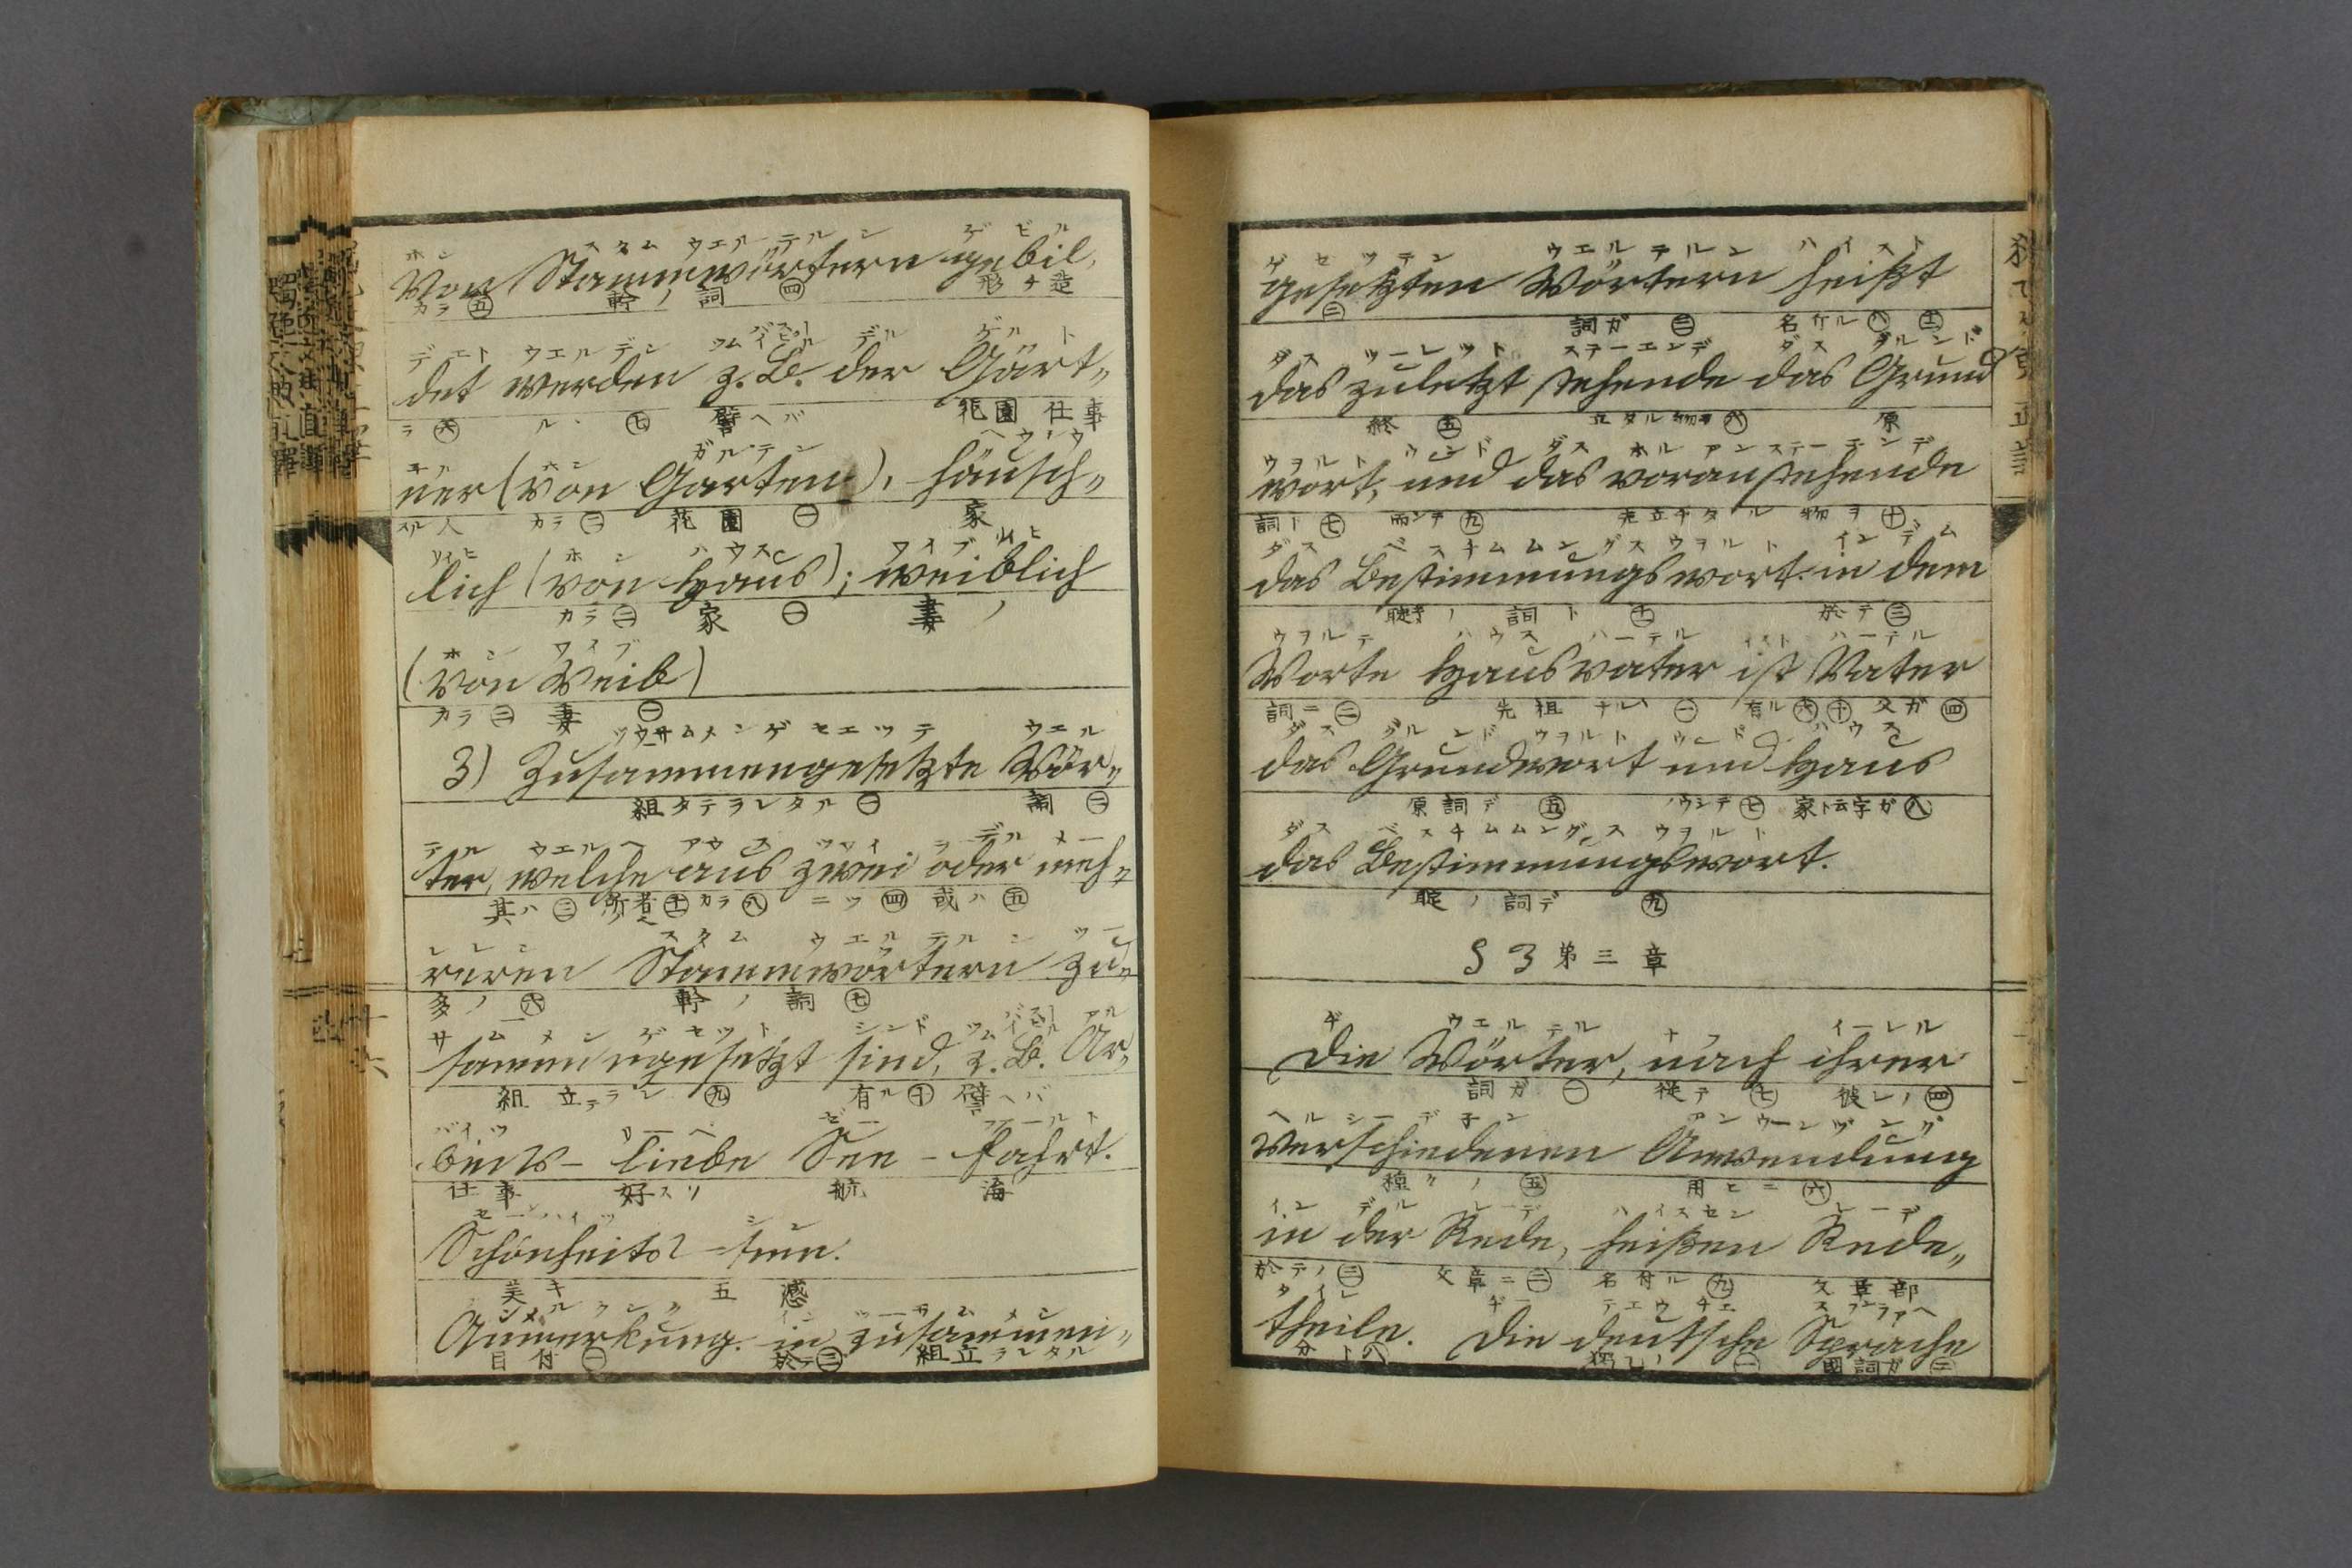 ホン スタム ウエル テル ン ゲ ビル
Von Stammwörtern gebil„
カラ㊄ 幹ノ詞 ㊃ 形チ造
デエト ウエル デン ツム バイスピル デル ゲル ト
det werden z. B. der Gärt„
ラ㊅ ル丶 ㊆ 譬ヘバ 花園 仕事
子ル ホン ガルテン ヘウソウ
ner (von Garten), häusch„
スル人 カラ㊁ 花園 ㊀ 家
リイヒ ホン ハウス ワイブ リイヒ
lich (von Haus); weiblich
カラ㊁ 家 ㊀ 妻ノ
ホン ワイブ
(von Weib)
カラ㊁ 妻 ㊀
ツウサムメンゲセエッテ ウエル
3) Zusammengesetzte Wör„
組タテラレタル㊀ 詞㊁
テル ウエルヘ アウス ツワイ ヲーデル メー
ter, welche aus zwei oder meh„
其ハ㊂ 所者 カラ㊇ 二ツ㊃ 或ハ㊄
レレン スタム ウエルテルン ツー
reren Stammwörtern zu„
多ノ ㊅ 幹ノ詞㊆
サムメンゲセット シンド ツム バイスピル アル
sammengesetzt sind, z. B. Ar„
組立テラレ ㊈ 有ル㊉ 譬ヘバ
バイツ リーベ ゼー ファールト
beits- liebe See - fahrt.
仕事 好スリ 航 海
セーンハイツ シン
Schönheits - sinn.
美キ 五感
アンメルクング イン ツーサムメン
Anmerkung. in zusammen„
目付㊀ 於テ㊂ 組立ラレタル
ゲセツテン ウエルテルン ハイスト
gesetzten Wörtern heißt
㊁ 詞ガ ㊂ 名ケル
ダス ツーレツト ステーエンデ ダス グルンド
das zuletzt stehende das Grund
終 ㊄ 立タル物ヲ㊅ 原
ウヲルト ウンド ダス ホルアンステーエンデ
wort, und das voranstehende
詞ト㊆ 而シテ㊈ 先立チタル物ヲ㊉
ダス ベスチムムングスウヲルト イン デム
das Bestimmungswort. in dem
聢ノ 詞ト 於テ㊂
ウヲルテ ハウス ハーテル イスト ハーテル
Worte Hausvater ist Vater
詞ニ㊁ 先祖ナル ㊀ 有ル㊅㊉ 父ガ㊃
ダス グルンド ウヲルト ウンド ハウス
das Grundwort und Haus
原詞デ ㊄ ㊆ 家ト云字ガ㊇
ダス ベスチムムングス ウヲルト
das Bestimmungswort.
聢ノ詞デ ㊈
§ 3 第三章
ヂ ウエルテル ナフ イーレル
Die Wörter, nach ihrer
詞ガ ㊀ 從テ㊆ 彼レノ㊃
ヘルシーデ子ン アンウーンヅング
verschiedenen Anwendung
種々ノ ㊄ 用ヒニ ㊅
イン デル レーデ ハイスセン レーデ
in der Rede, heißen Rede„
於テノ㊂ 文章ニ㊁ 名付ル㊈ 文章部
タイレ ヂー テエウチエ スプラアヘ
theile. Die deutsche Sprache
分ト㊇ 獨乙ノ ㊀ 國詞ガ㊁